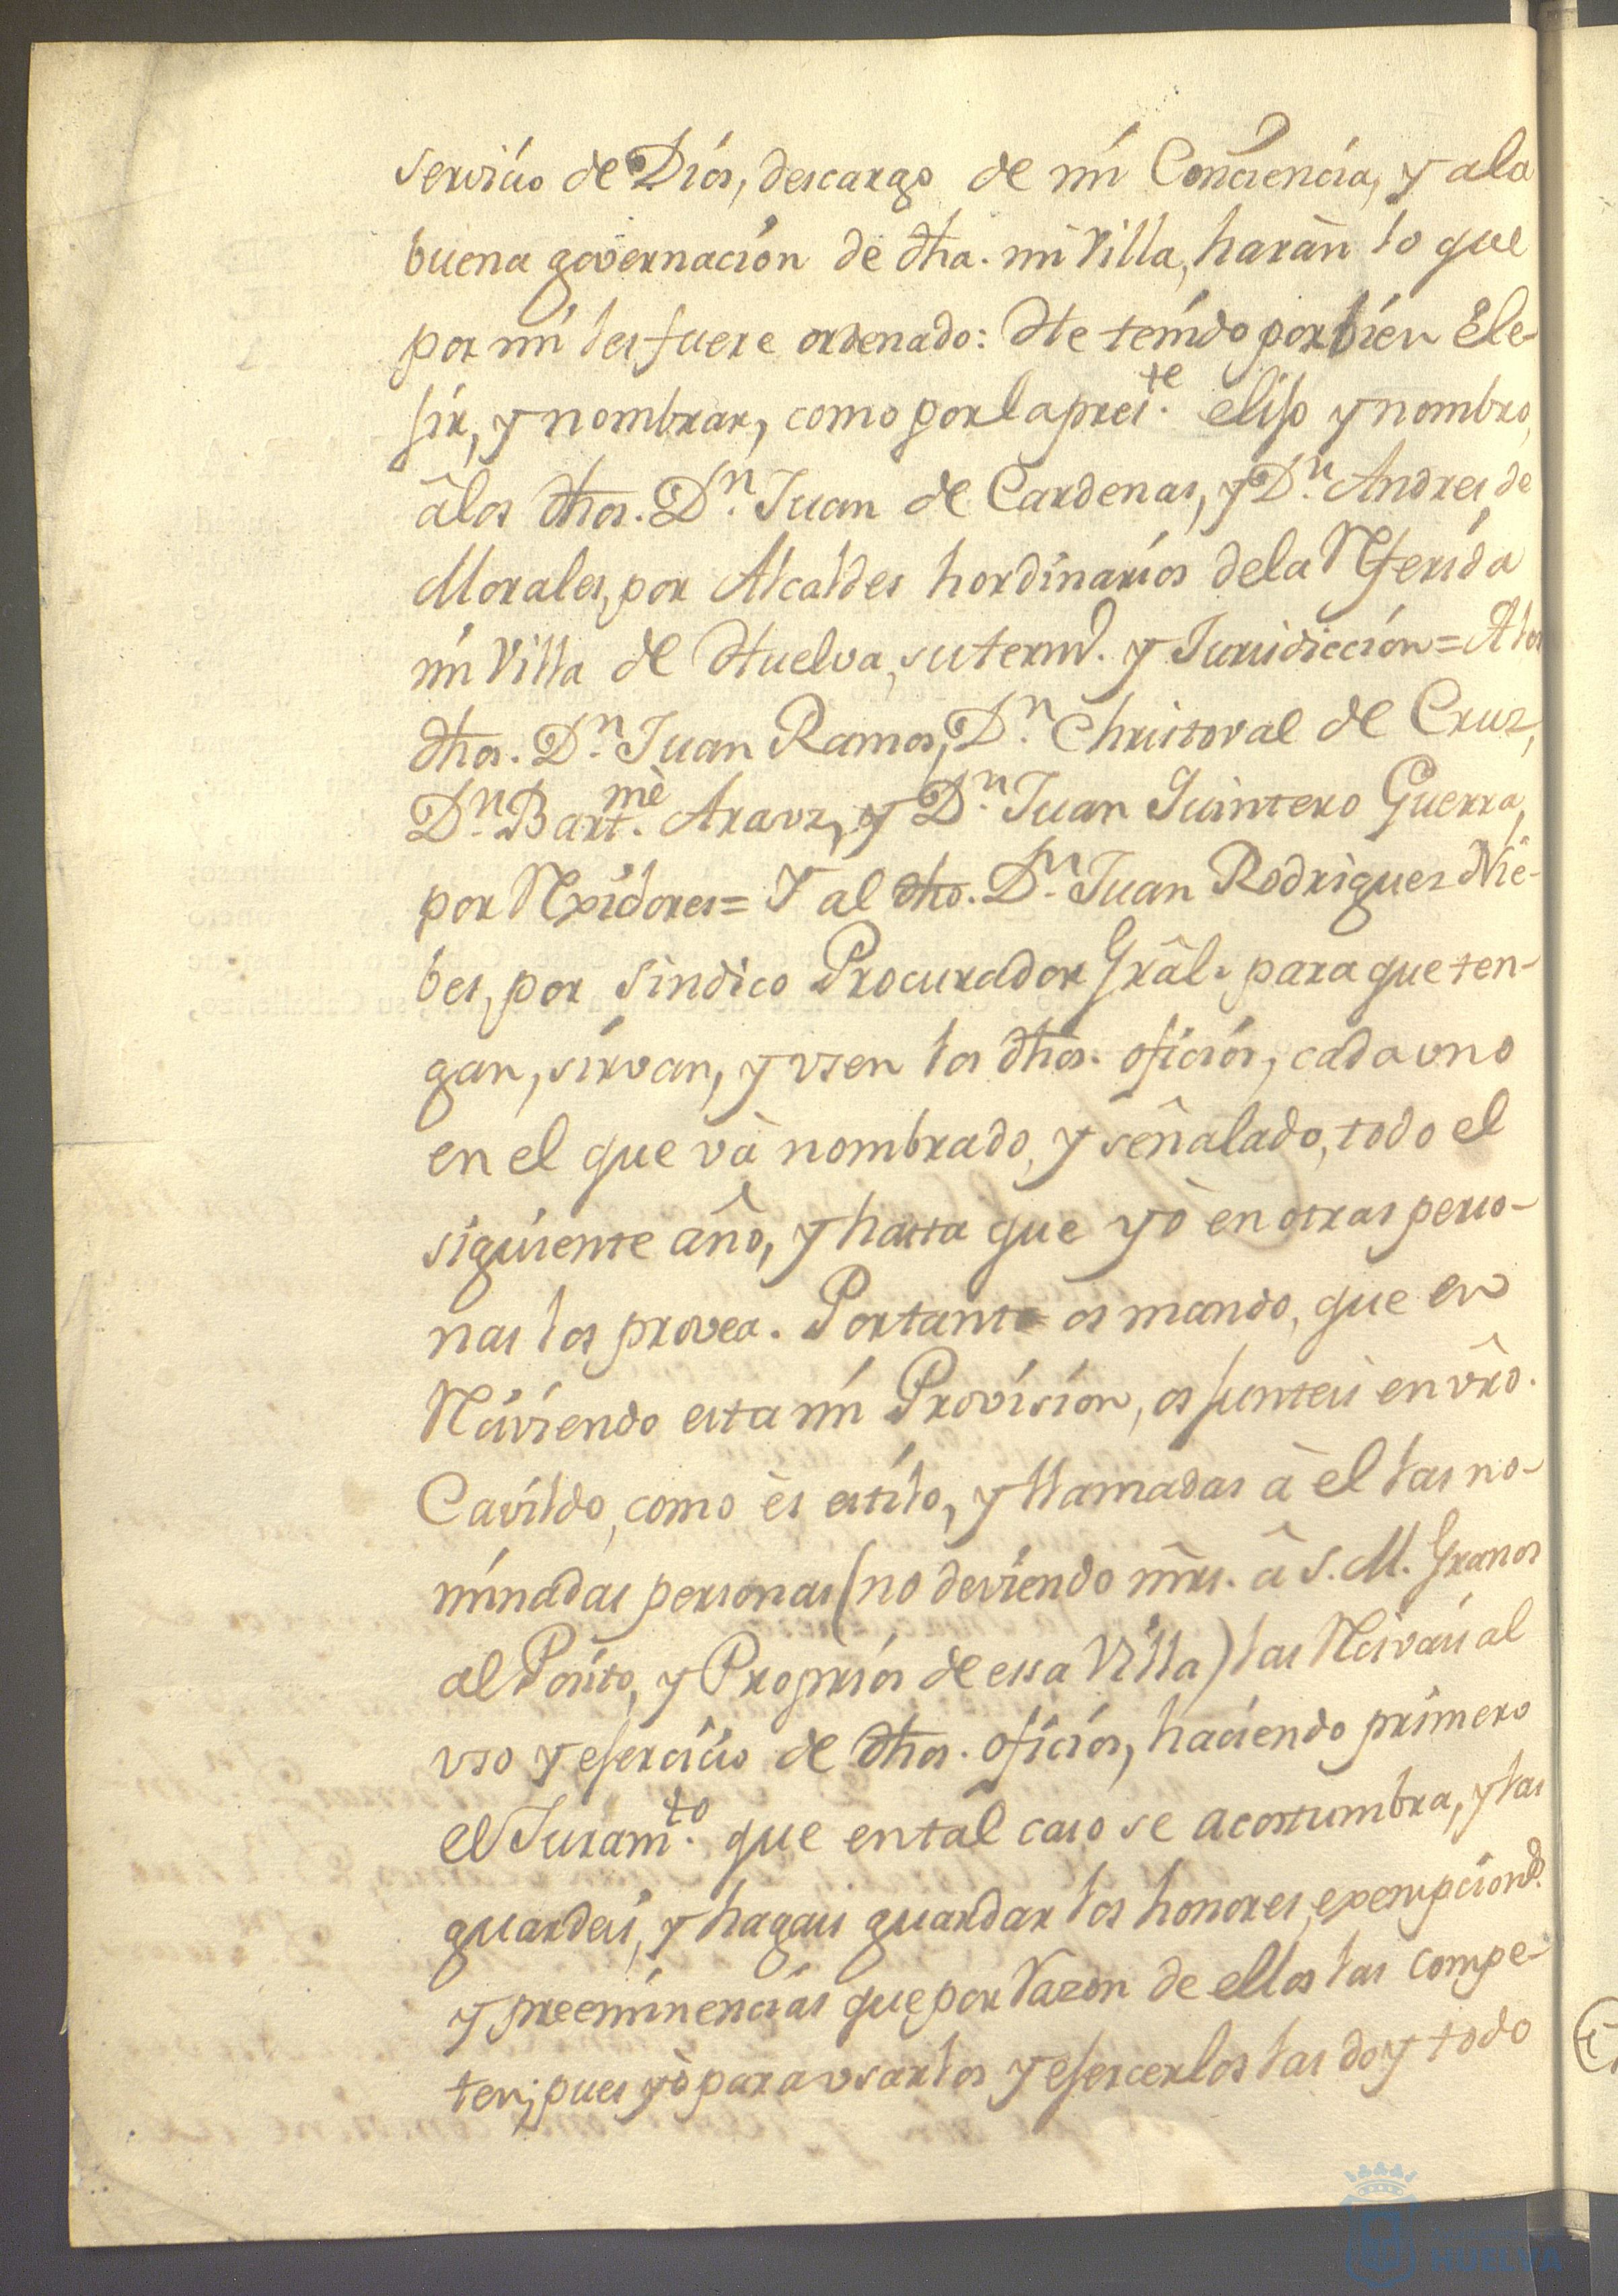 servicio de Dios, descargo de mi Conciencia, y ala
buena governacion de dha. mi Villa, haràn lo que
por mi les fuere ordenado: He tenido por bien Ele-
jir, y nombrar, como por la pres.te elijo y nombro,
âlos dhos. Dn. Juan de Cardenas, y Dn. Andres de
Morales, por Alcaldes hordinarios dela Referida
mi Villa de Huelva, su termo. y Jurisdiccion = A los
dhos. Dn. Juan Ramos, Dn. Christoval de Cruz,
Dn. Bart.mè Arauz, y Dn. Juan Quintero Guerra,
por Rexidores = Y al dho. Dn. Juan Rodriguez Nie-
bes, por Sindico Procurador Grâl. para que ten-
gan, sirvan, y vsen los dhos. oficios, cada uno
en el que và nombrado, y señalado, todo el
siguiente año, y hasta que yò en otras perso-
nas los provea. Portanto os mando, que en
Reciviendo esta mi Provision, os junteis en vrõ.
Cavildo, como ès estilo, y llamadas à èl las no-
minadas personas (no deviendo mrs. â S. M. Granos
al Posito, y Proprios de essa Villa) las Resivais al
vso y esercicio de dhos. oficios, haciendo primero
el Juram.to que en tal caso se acostumbra, y las
guardeis, y hagais guardar los honores, exempciones.
y preeminencias que por Razon de ellos las compe-
ten; pues yò para vsarlos y ejercerlos las doy todo
HUELVA